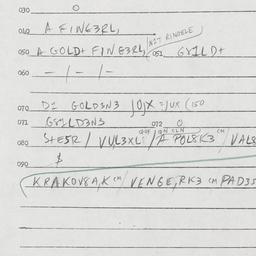 030 O
040 A FINGERL,
050 A GOLD+ FINGERL, NIT RINDELE 051 GYILD+
060 — / — / —
070 DI GOLDENE JOJX = JUX (150
071 GYILDENE 072 O
080 STEER / VULEXLI / A POLSKE CM / VALS
$
090
KRAKOVSA,K CM / VENGE,RKE CM PADES